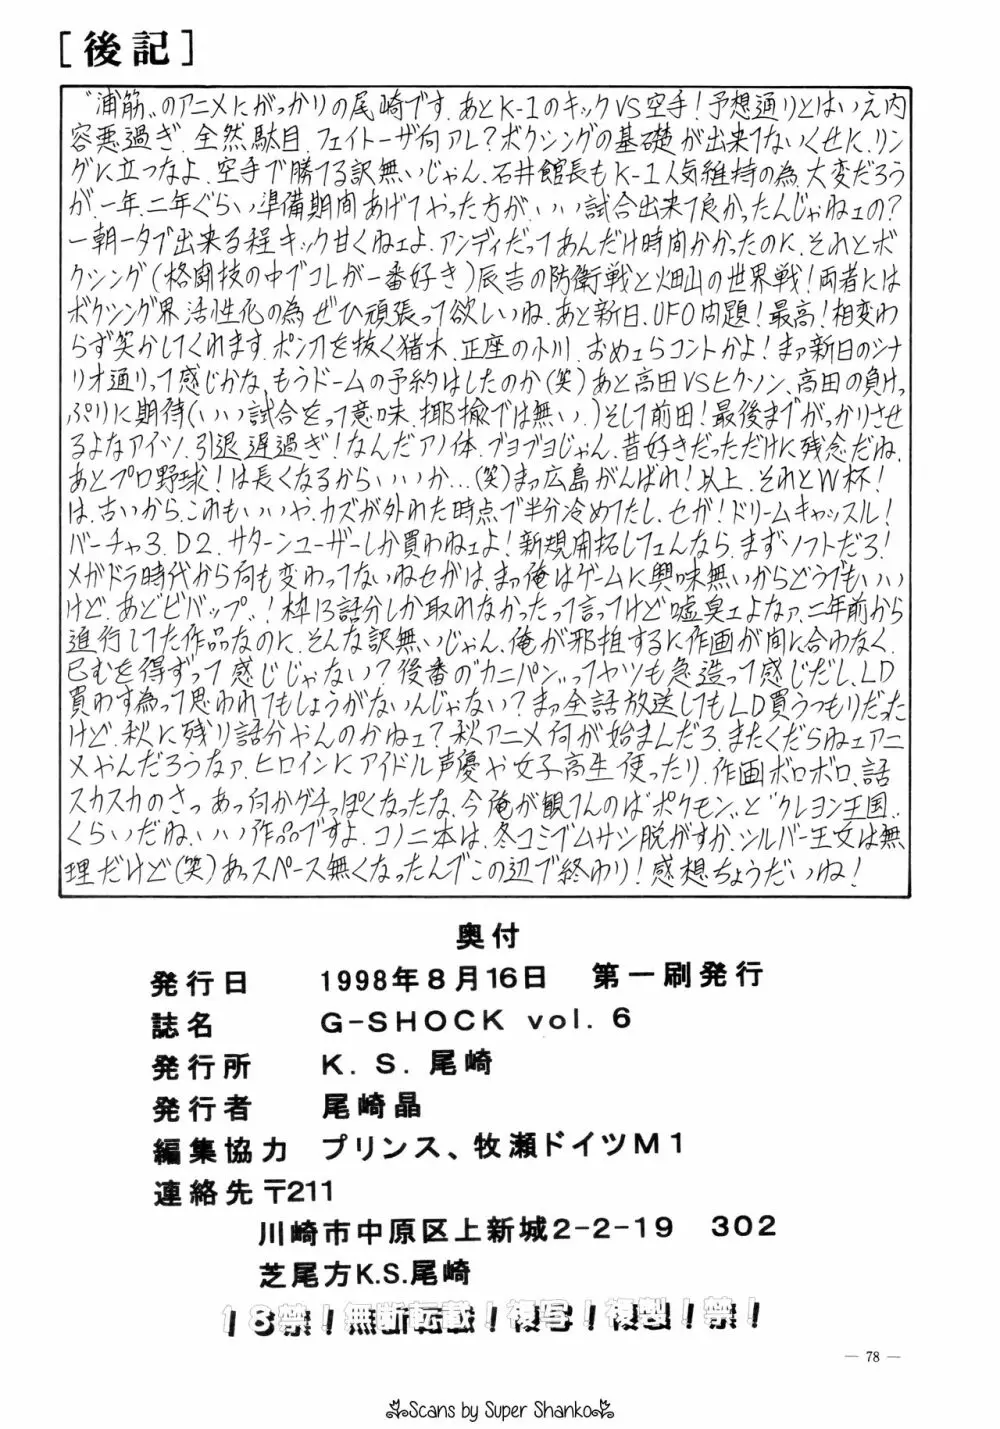 [後記]
“浦筋”のアニメにがっかりの尾崎です。あとK-1のキックVS空手!予想通りとはいえ内
容悪過ぎ。全然駄目。フェイトーザ何アレ?ボクシングの基礎が出来てないくせに、リン
グに立つなよ。空手で勝てる訳無いじゃん。石井館長もK-1人気維持の為、大変だろう
が、一年、二年ぐらい準備期間あげてやった方が、いい試合出来て良かったんじゃねェの?
一朝一夕で出来る程キック甘くねェよ。アンディだってあんだけ時間かかったのに。それとボ
クシング(格闘技の中でコレが一番好き)辰吉の防衛戦と畑山の世界戦!両者には
ボクシング界活性化の為ぜひ頑張って欲しいね。あと新日、UFO問題!最高!相変わ
らず笑かしてくれます。ポン刀を抜く猪木、正座の小川。おめェらコントかよ!まっ新日のシナ
リオ通りって感じかな。もうドームの予約はしたのか(笑)あと高田VSヒクソン、高田の負けっ
ぷりに期待(いい試合をって意味。揶揄では無い。)そして前田!最後までがっかりさせ
るよなアイツ。引退遅過ぎ!なんだアノ体。ブヨブヨじゃん。昔好きだっただけに残念だね。
あとプロ野球!は長くなるからいいか…(笑)まっ広島がんばれ!以上。それとW杯!
は、古いから、これもいいや。カズが外れた時点で半分冷めてたし。セガ!ドリームキャッスル!
バーチャ3、D2、サターンユーザーしか買わねェよ!新規開拓してェんなら、まずソフトだろ!
メガドラ時代から何も変わってないねセガは。まっ俺はゲームに興味無いからどうでもいい
けど。あとビバップ!枠13話分しか取れなかったって言ってけど嘘臭ェよなァ、二年前から
進行してた作品なのに、そんな訳無いじゃん。俺が邪推するに作画が間に合わなく、
已むを得ずって感じじゃない?後番の“カニパン”ってヤツも急造って感じだし、LD
買わす為って思われてもしょうがないんじゃない?まっ全話放送してもLD買うつもりだった
けど。秋に残り話分やんのかねェ?秋アニメ何が始まんだろ。またくだらねェアニ
メやんだろうなァ。ヒロインにアイドル声優や女子高生使ったり、作画ボロボロ、話
スカスカのさっ。あっ何かグチっぽくなったな。今俺が観てんのは“ポケモン”と“クレヨン王国”
くらいだね。いい作品ですよ。コノ二本は。冬コミでムサシ脱がすか。シルバー王女は無
理だけど(笑)あっスペース無くなったんでこの辺で終わり!感想ちょうだいね!
奥付
発行日 1998年8月16日 第一刷発行
誌名 G-SHOCK vol. 6
発行所 K. S. 尾崎
発行者 尾崎晶
編集協力 プリンス、牧瀬ドイツM1
連絡先〒211
川崎市中原区上新城2-2-19 302
芝尾方K.S.尾崎
18禁!無断転載!複写!複製!禁!
— 78 —
Scans by Super Shanko